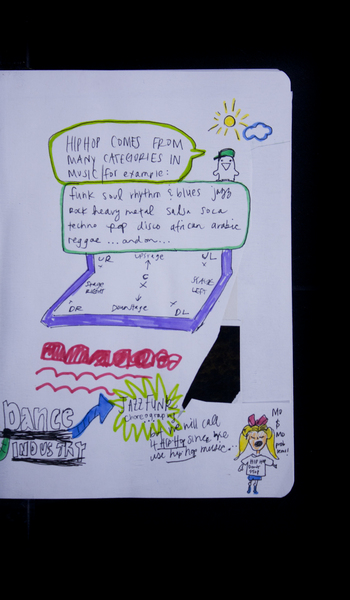 HIPHOP COMES FROM
MANY CATEGORIES IN
MUSIC for example:
funk soul rhythm & blues jazz
rock heavy metal salsa soca
techno pop disco african arabic
reggae ...and on...
UR upstage UL
STAGE RIGHT C STAGE LEFT
DR Downstage DL
DANCE
INDUSTRY
JAZZ FUNK
choreography
but we will call
it HIPHOP since we
use hip hop music...
HIP HOP
DON'T
STOP
NO
&
NO